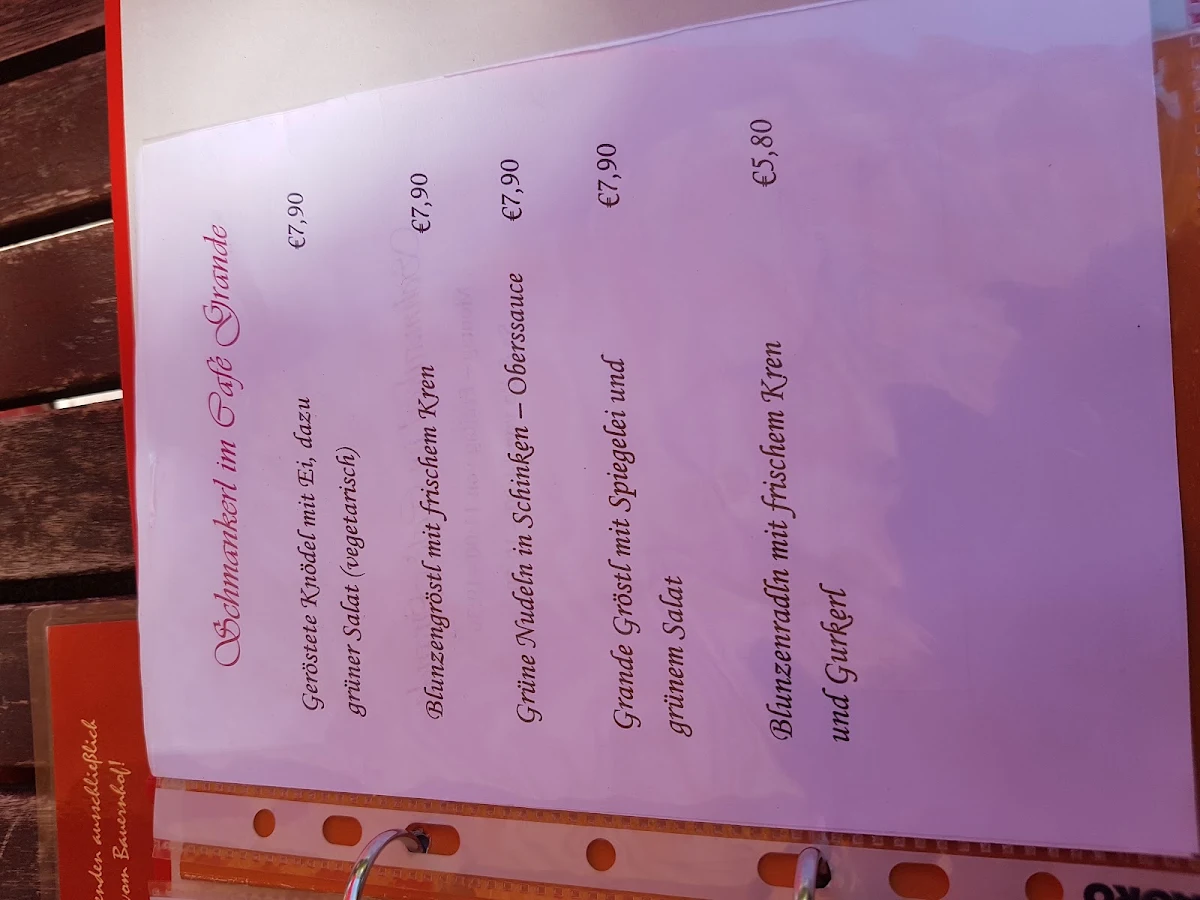 Schmankerl im Café Grande
Geröstete Knödel mit Ei, dazu €7,90
grüner Salat (vegetarisch)
Blunzengröstl mit frischem Kren €7,90
Grüne Nudeln in Schinken – Oberssauce €7,90
Grande Gröstl mit Spiegelei und €7,90
grünem Salat
Blunzenradln mit frischem Kren €5,80
und Gurkerl
ausschließlich
vom Bauernhof!